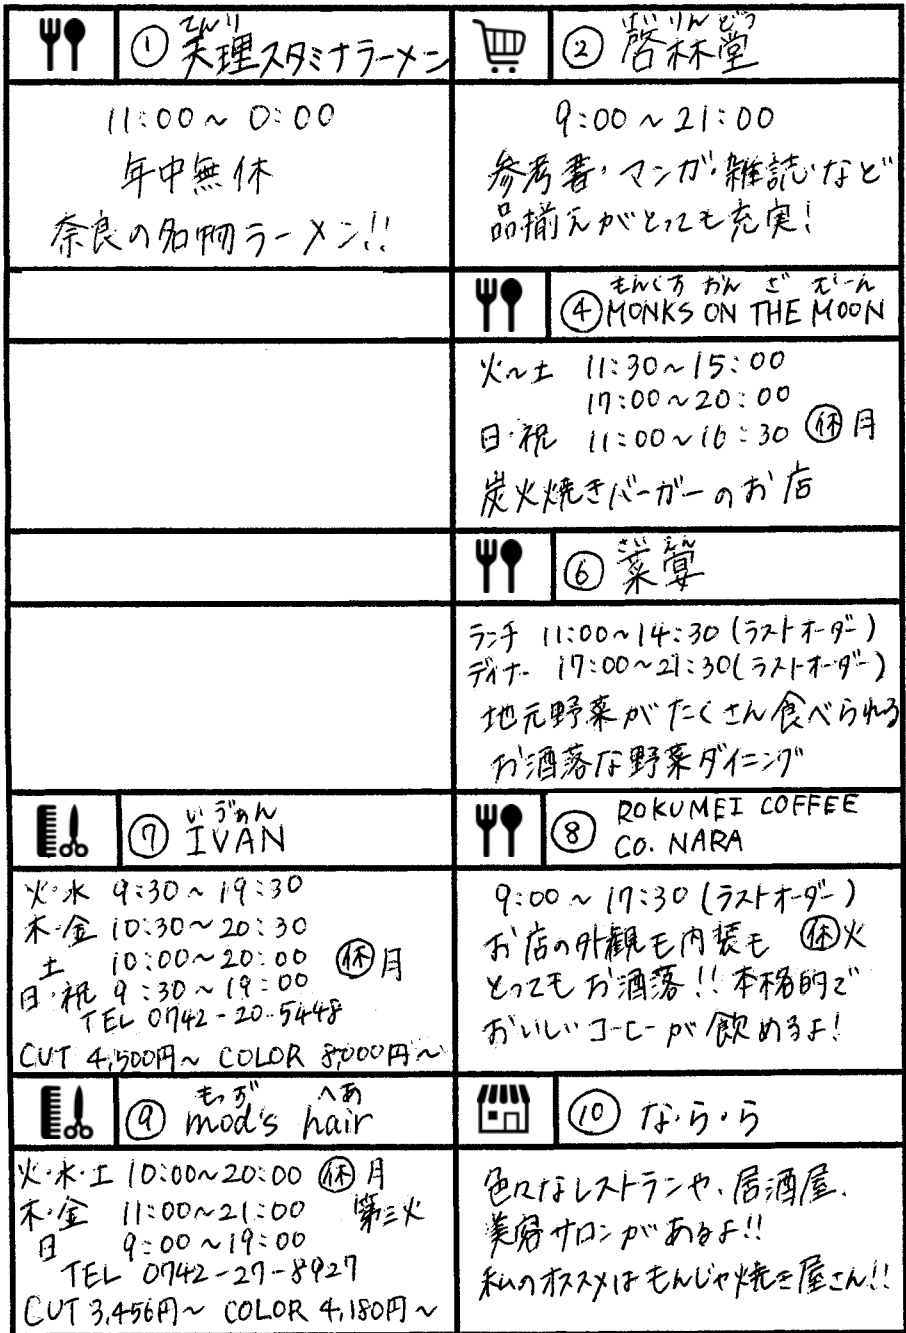 てんり
① 天理スタミナラーメン
11:00～0:00
年中無休
奈良の名物ラーメン!!
けいりんどう
② 啓林堂
9:00～21:00
参考書・マンガ・雑誌など
品揃えがとっても充実!
もんくす おん ざ むーん
④ MONKS ON THE MOON
火～土 11:30～15:00
17:00～20:00
日・祝 11:00～16:30 休 月
炭火焼きバーガーのお店
さい えん
⑥ 菜宴
ランチ 11:00～14:30(ラストオーダー)
ディナー 17:00～21:30(ラストオーダー)
地元野菜がたくさん食べられる
お洒落な野菜ダイニング
いゔぁん
⑦ IVAN
火・水 9:30～19:30
木・金 10:30～20:30
土 10:00～20:00 休 月
日・祝 9:30～19:00
TEL 0742-20-5448
CUT 4,500円～ COLOR 8,000円～
⑧ ROKUMEI COFFEE
CO. NARA
9:00～17:30(ラストオーダー)
お店の外観も内装も 休 火
とってもお洒落!!本格的で
おいしいコーヒーが飲めるよ!
もっず へあ
⑨ mod's hair
火・水・土 10:00～20:00 休 月
木・金 11:00～21:00 第三火
日 9:00～19:00
TEL 0742-27-8927
CUT 3,456円～ COLOR 4,180円～
⑩ な・ら・ら
色々なレストランや、居酒屋、
美容サロンがあるよ!!
私のオススメはもんじゃ焼き屋さん!!